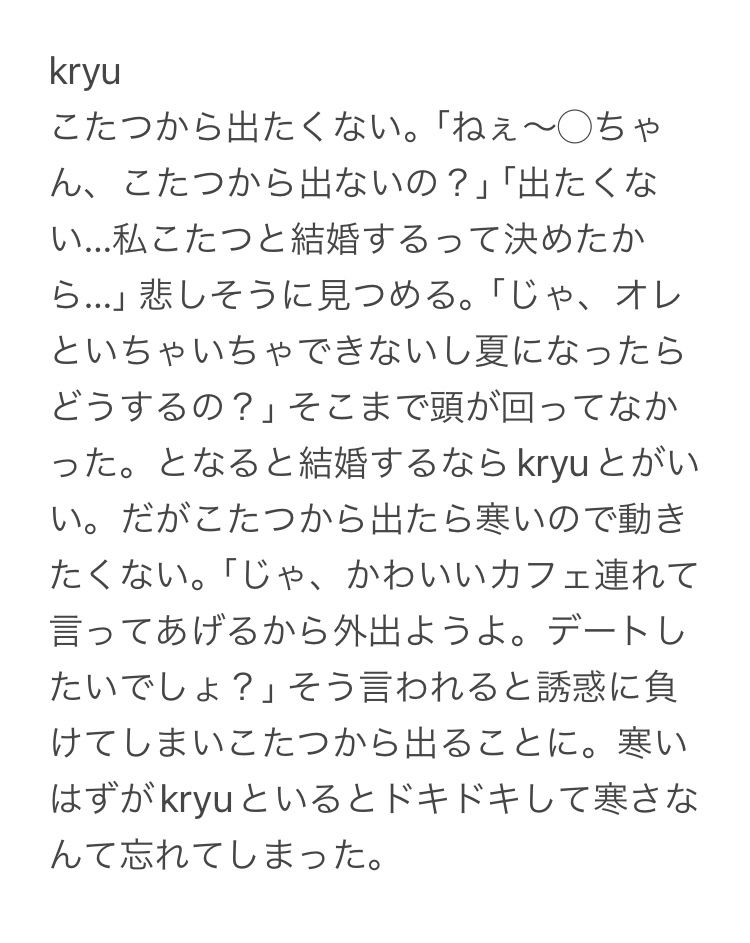 kryu
こたつから出たくない。「ねぇ〜◯ちゃ
ん、こたつから出ないの？」「出たくな
い…私こたつと結婚するって決めたか
ら…」悲しそうに見つめる。「じゃ、オレ
といちゃいちゃできないし夏になったら
どうするの？」そこまで頭が回ってなか
った。となると結婚するならkryuとがい
い。だがこたつから出たら寒いので動き
たくない。「じゃ、かわいいカフェ連れて
言ってあげるから外出ようよ。デートし
たいでしょ？」そう言われると誘惑に負
けてしまいこたつから出ることに。寒い
はずがkryuといるとドキドキして寒さな
んて忘れてしまった。